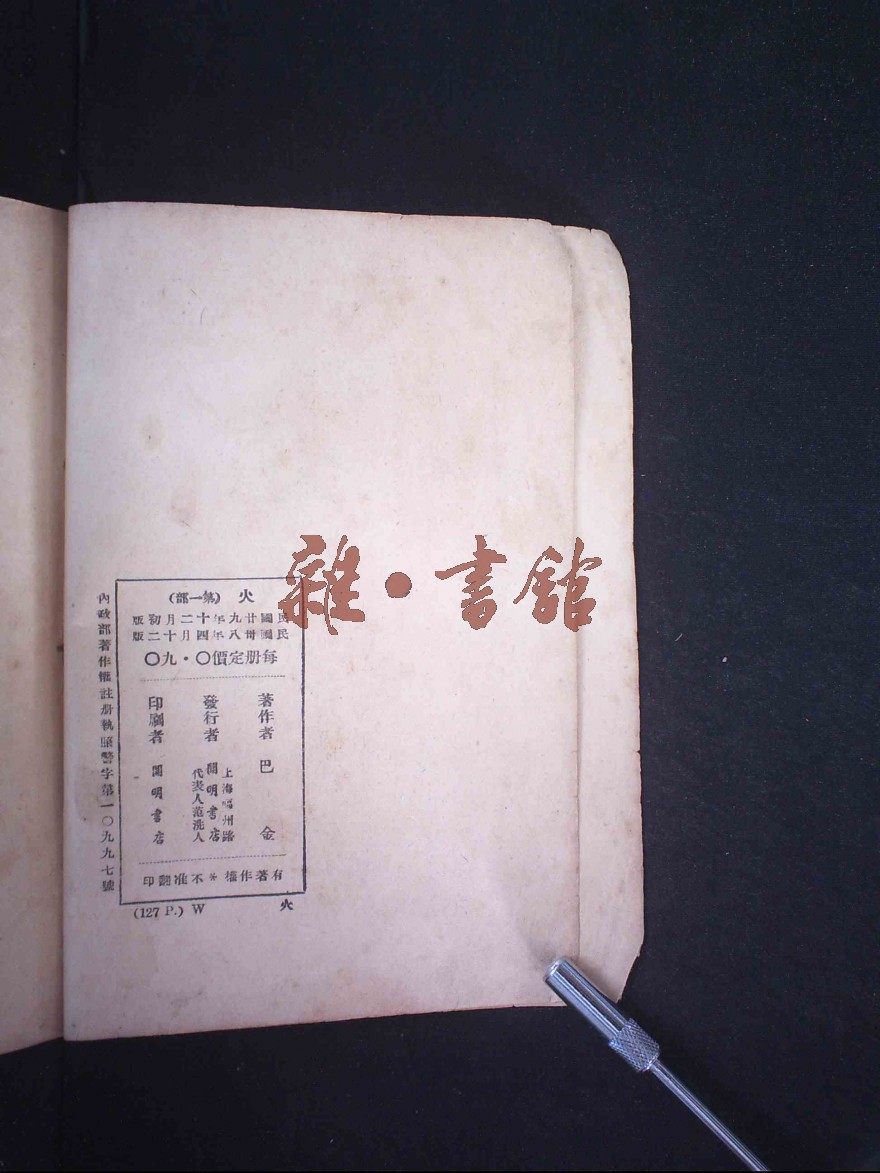 火 (第一部)
民國廿九年十二月初版
民國卅八年四月十二版
每册定價〇·九〇
著作者 巴金
發行者
上海福州路
開明書店
代表人范洗人
印刷者 開明書店
有著作權＊不准翻印
內政部著作權註册執照警字第一〇九九七號
(127 P.) W
火
雜·書館